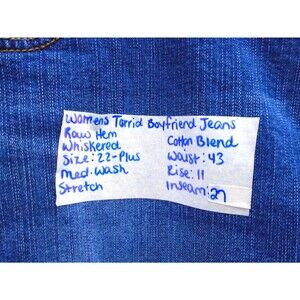 Womens Torrid Boyfriend Jeans
Raw Hem
Whiskered
Size: 22-Plus
Med. Wash
Stretch
Cotton Blend
Waist: 43
Rise: 11
Inseam: 27